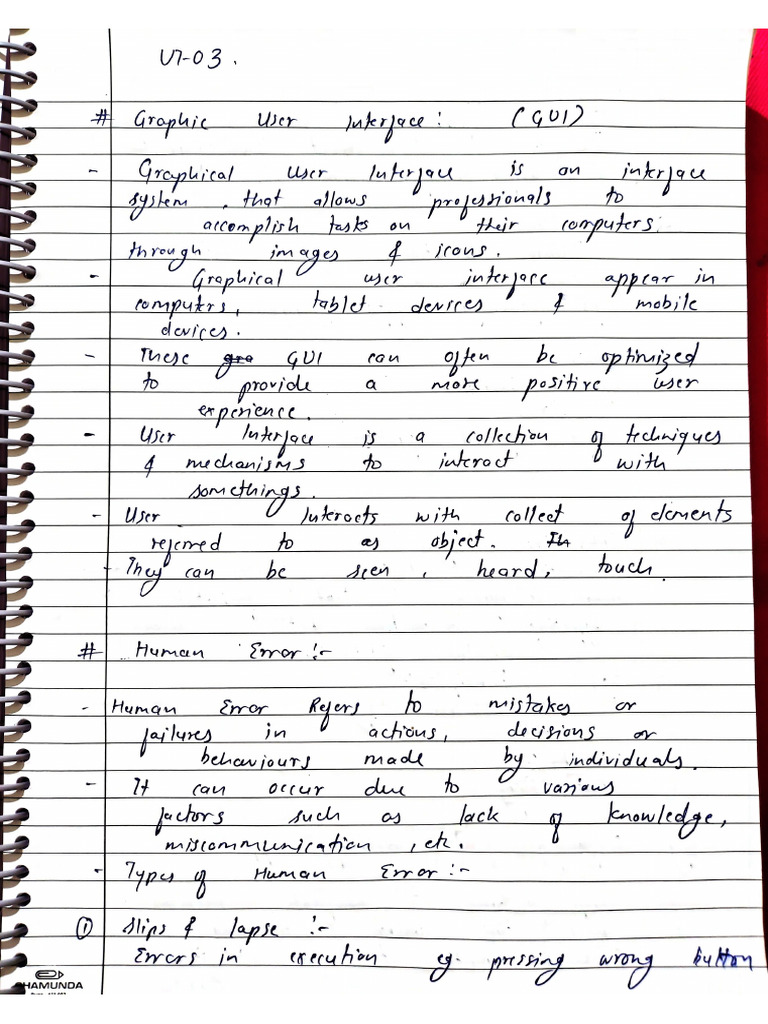 U1-03.
# Graphic User Interface: (GUI)
- Graphical User Interface is an interface
system, that allows professionals to
accomplish tasks on their computers
through images & icons.
- Graphical user interface appear in
computers, tablet devices & mobile
devices.
- These GUI can often be optimized
to provide a more positive user
experience.
- User Interface is a collection of techniques
& mechanisms to interact with
somethings.
- User Interacts with collect of elements
referred to as object.
- They can be seen, heard, touch.
# Human Error :-
- Human Error Refers to mistakes or
failures in actions, decisions or
behaviours made by individuals.
- It can occur due to various
factors such as lack of knowledge,
miscommunication, etc.
- Types of Human Error :-
① Slips & lapse :-
Errors in execution eg. pressing wrong button
CHAMUNDA